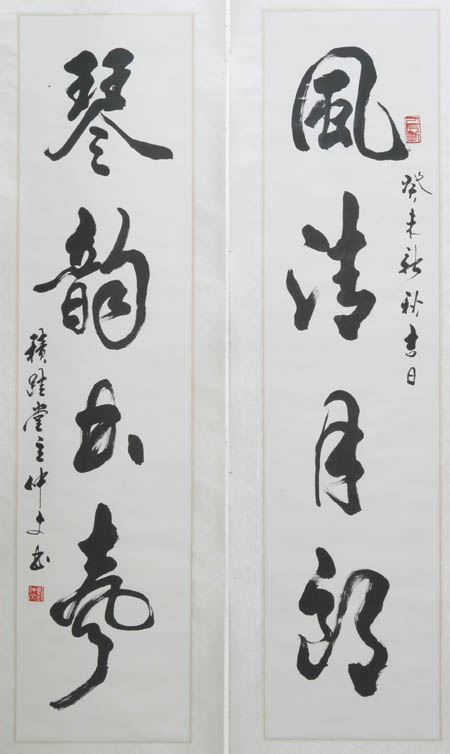 癸未新秋吉日
風清月朗
琴韻書聲
積跬堂主仲文書